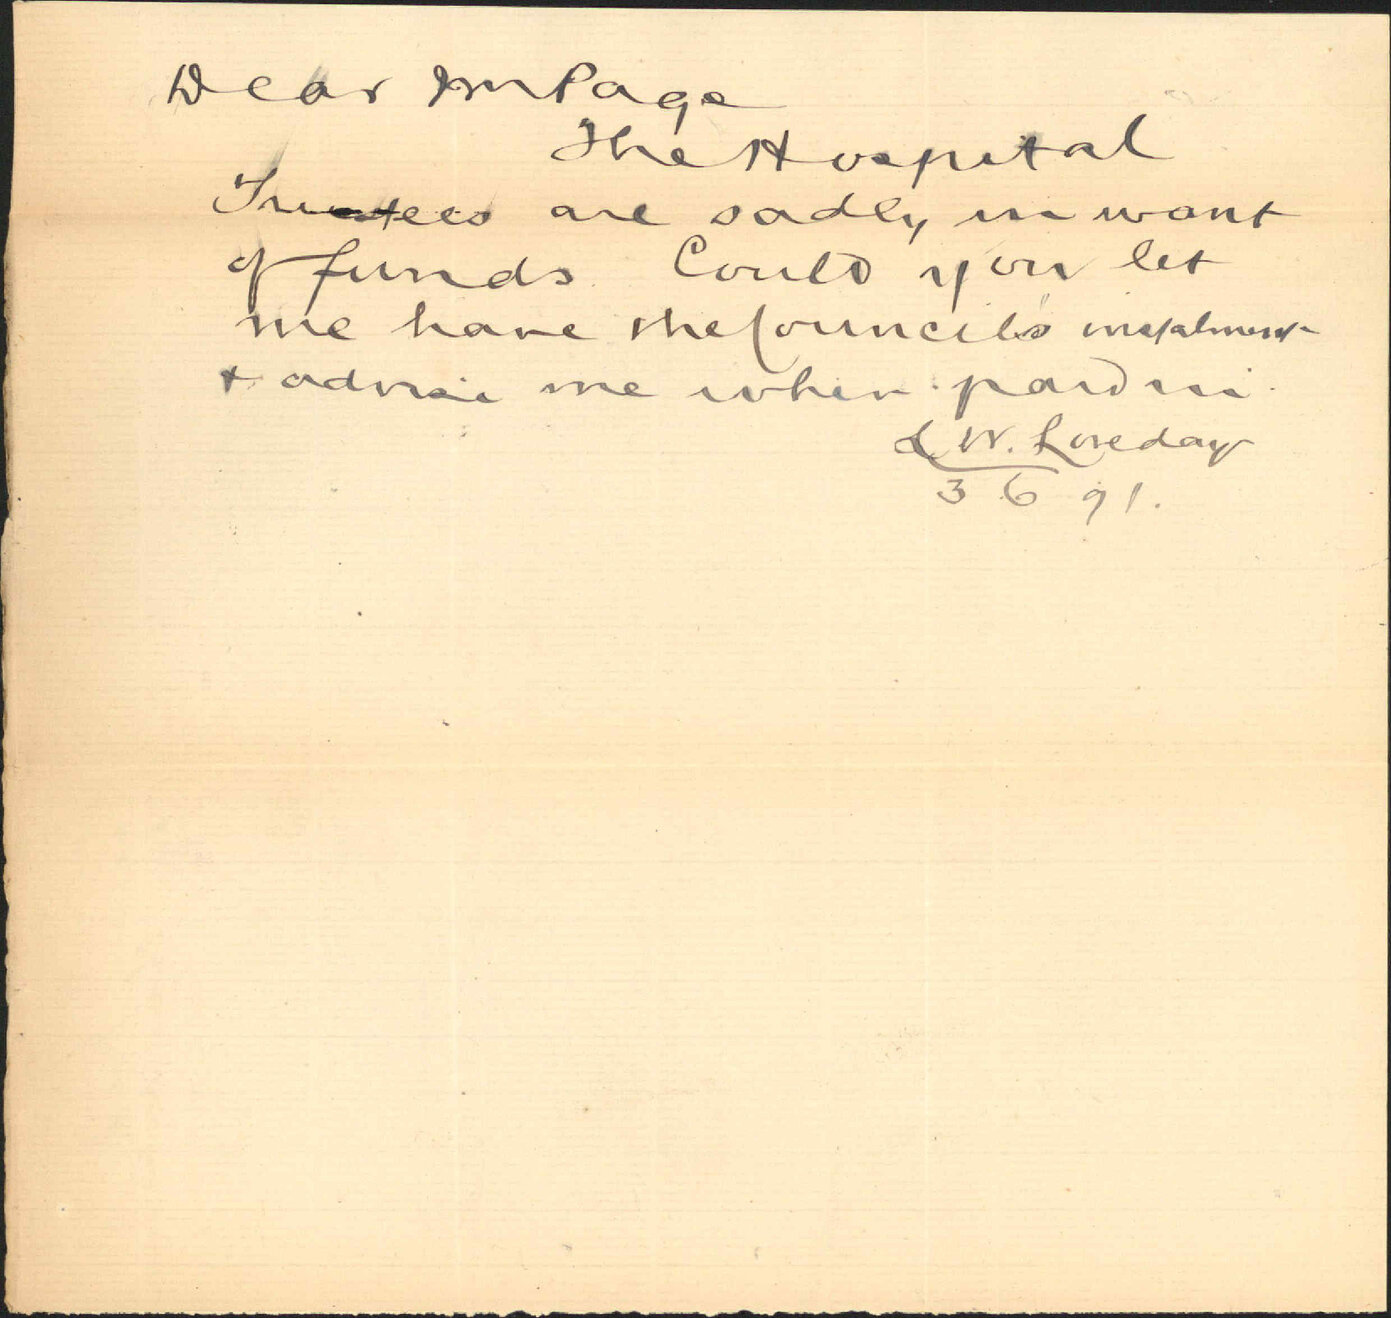 Dear Mr Page
The Hospital
Trustees are sadly in want
of funds. Could you let
me have the Council's instalment
& advise me when paid in.
L W. Loveday
3 6 91.